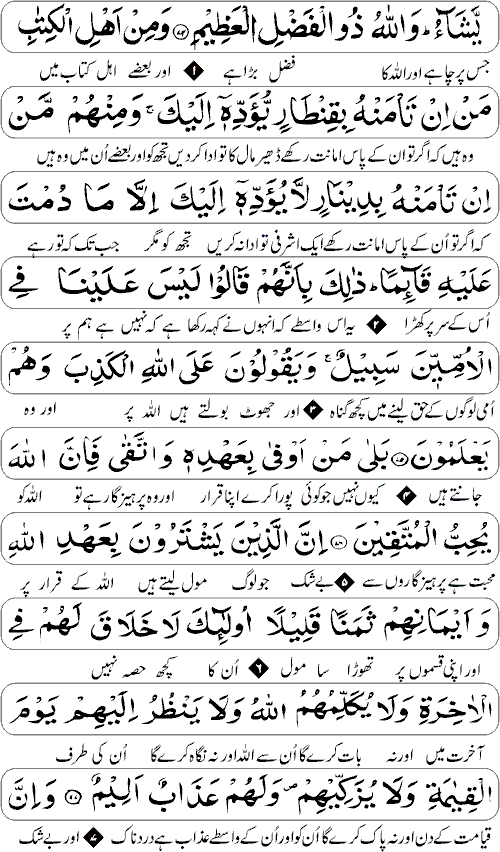 يَّشَآءُ ؕ وَاللّٰهُ ذُو الْفَضْلِ الْعَظِيْمِ ﴿۷۴﴾ وَمِنْ اَهْلِ الْكِتٰبِ
جس پر چاہے اور اللہ کا فضل بڑا ہے ۱ اور بعضے اہل کتاب میں
مَنْ اِنْ تَاْمَنْهُ بِقِنْطَارٍ يُّؤَدِّهٖۤ اِلَيْكَ ۚ وَمِنْهُمْ مَّنْ
وہ ہیں کہ اگر تو ان کے پاس امانت رکھے ڈھیر مال کا تو ادا کردیں تجھ کو اور بعضے اُن میں وہ ہیں
اِنْ تَاْمَنْهُ بِدِيْنَارٍ لَّا يُؤَدِّهٖۤ اِلَيْكَ اِلَّا مَا دُمْتَ
کہ اگر تو اُن کے پاس امانت رکھے ایک اشرفی تو ادا نہ کریں تجھ کو مگر جب تک کہ تو رہے
عَلَيْهِ قَآئِمًا ؕ ذٰلِكَ بِاَنَّهُمْ قَالُوْا لَيْسَ عَلَيْنَا فِي
اُس کے سر پر کھڑا ۲ یہ اس واسطے کہ انہوں نے کہہ رکھا ہے کہ نہیں ہے ہم پر
الْاُمِّيّٖنَ سَبِيْلٌ ۚ وَيَقُوْلُوْنَ عَلَى اللّٰهِ الْكَذِبَ وَهُمْ
اُمی لوگوں کے حق لینے میں کچھ گناہ ۳ اور جھوٹ بولتے ہیں اللہ پر اور وہ
يَعْلَمُوْنَ ﴿۷۵﴾ بَلٰى مَنْ اَوْفٰى بِعَهْدِهٖ وَاتَّقٰى فَاِنَّ اللّٰهَ
جانتے ہیں ۴ کیوں نہیں جو کوئی پورا کرے اپنا قرار اور وہ پرہیزگار ہے تو اللہ کو
يُحِبُّ الْمُتَّقِيْنَ ﴿۷۶﴾ اِنَّ الَّذِيْنَ يَشْتَرُوْنَ بِعَهْدِ اللّٰهِ
محبت ہے پرہیزگاروں سے ۵ بے شک جو لوگ مول لیتے ہیں اللہ کے قرار پر
وَ اَيْمَانِهِمْ ثَمَنًا قَلِيْلًا اُولٰٓئِكَ لَا خَلَاقَ لَهُمْ فِي
اور اپنی قسموں پر تھوڑا سا مول ۶ اُن کا کچھ حصہ نہیں
الْاٰخِرَةِ وَلَا يُكَلِّمُهُمُ اللّٰهُ وَلَا يَنْظُرُ اِلَيْهِمْ يَوْمَ
آخرت میں اور نہ بات کرے گا اُن سے اللہ اور نہ نگاہ کرے گا اُن کی طرف
الْقِيٰمَةِ وَلَا يُزَكِّيْهِمْ ۪ وَلَهُمْ عَذَابٌ اَلِيْمٌ ﴿۷۷﴾ وَاِنَّ
قیامت کے دن اور نہ پاک کرے گا اُن کو اور اُن کے واسطے عذاب ہے دردناک ۷ اور بے شک